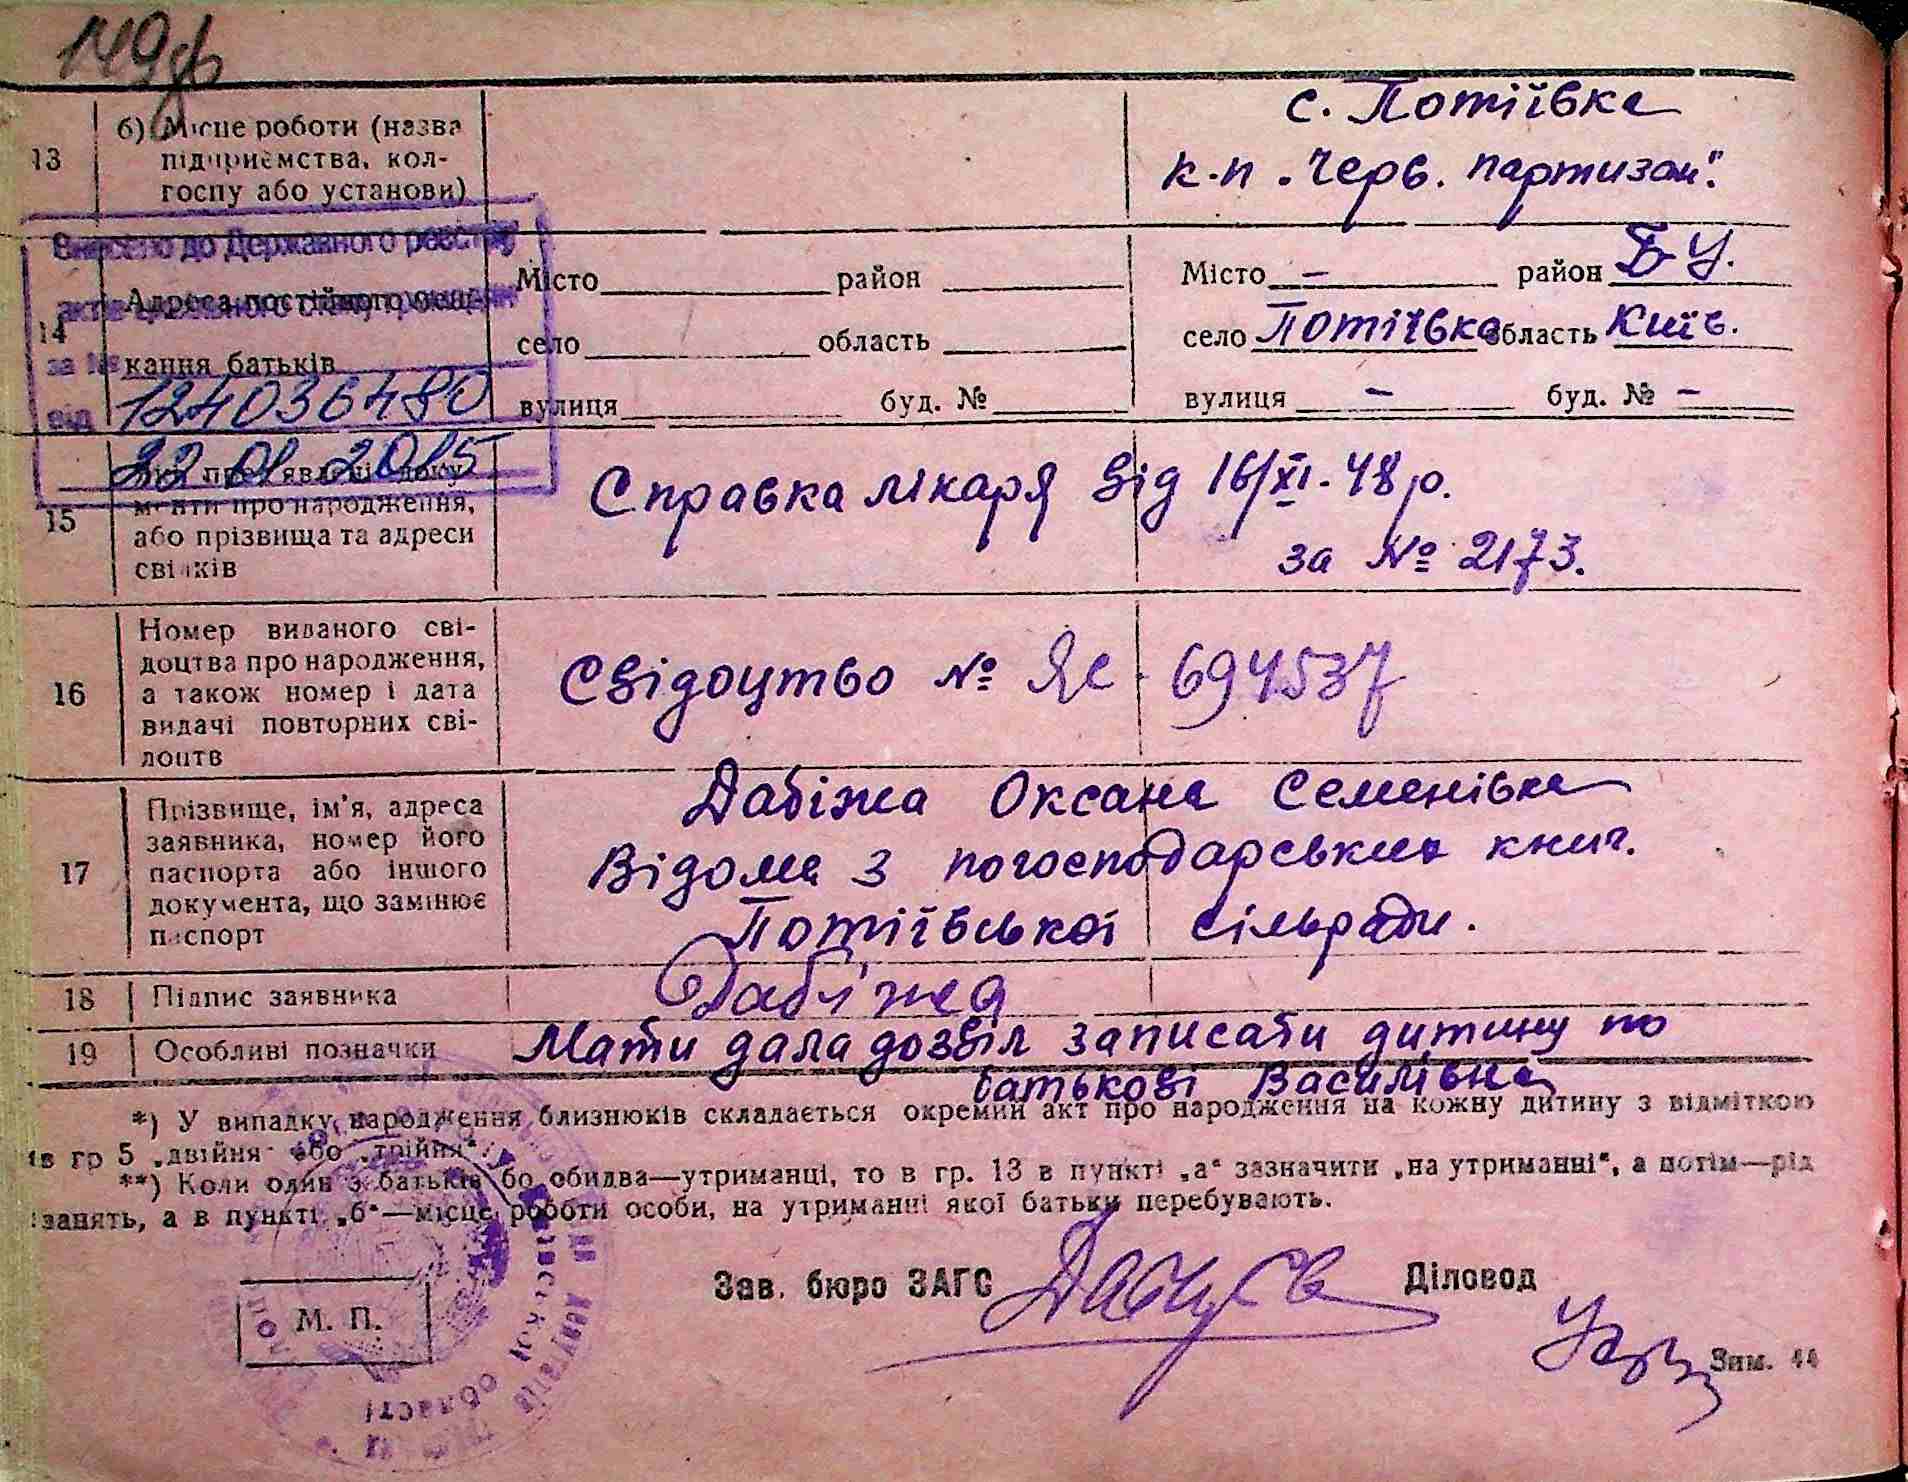 149
13
б) Місце роботи (назва
підприємства, кол-
госпу або установи)
с. Потіївка
к-п „Черв. партизан".
Внесено до Державного реєстру
актів цивільного стану громадян
за №
від 124036480
22 01 2015
14
Адреса постійного меш-
кання батьків
Місто район
село область
вулиця буд. №
Місто – район Б Ц.
село Потіївка область Київ.
вулиця – буд. № –
15
Які пред'явлені доку-
менти про народження,
або прізвища та адреси
свідків
Справка лікаря від 16/XI-48 р.
за № 2173.
16
Номер виданого сві-
доцтва про народження,
а також номер і дата
видачі повторних сві-
доцтв
Свідоцтво № ЯС 694537
17
Прізвище, ім'я, адреса
заявника, номер його
паспорта або іншого
документа, що замінює
паспорт
Дабіжа Оксана Семенівна
Відома з погосподарських книг.
Потіївської сільради.
18
Підпис заявника
Дабіжа
19
Особливі позначки
Мати дала дозвіл записати дитину по
батькові Василівна
*) У випадку народження близнюків складається окремий акт про народження на кожну дитину з відміткою
в гр 5 „двійня" або „трійня".
**) Коли один з батьків або обидва—утриманці, то в гр. 13 в пункті „а" зазначити „на утриманні", а потім—рід
занять, а в пункті „б"—місце роботи особи, на утриманні якої батьки перебувають.
Зав. бюро ЗАГС
Діловод
М. П.
області
Зим. 44